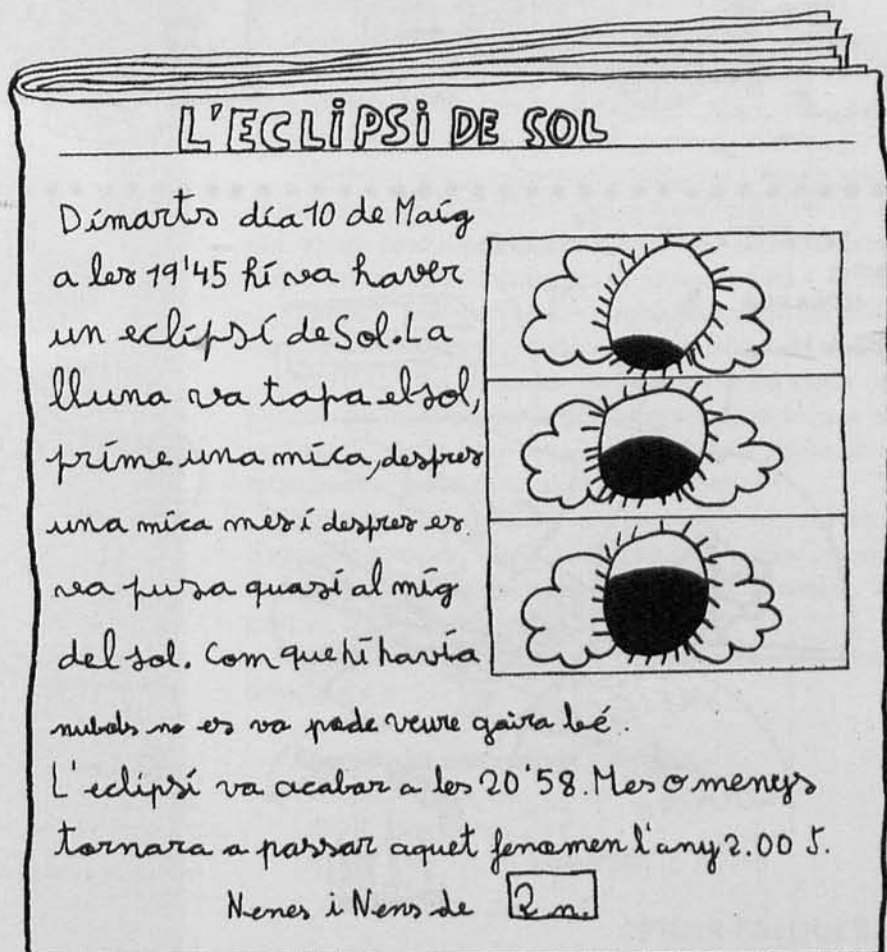 L'ECLIPSI DE SOL
Dimarts dia 10 de Maig
a les 19'45 hi va haver
un eclipsi de Sol. La
lluna va tapa el sol,
prime una mica, despres
una mica mes i despres es
va pusa quasi al mig
del sol. Com que hi havia
nubols no es va pode veure gaira bé.
L'eclipsi va acabar a les 20'58. Mes o menys
tornara a passar aquet fenomen l'any 2.005.
Nenes i Nens de 2n.